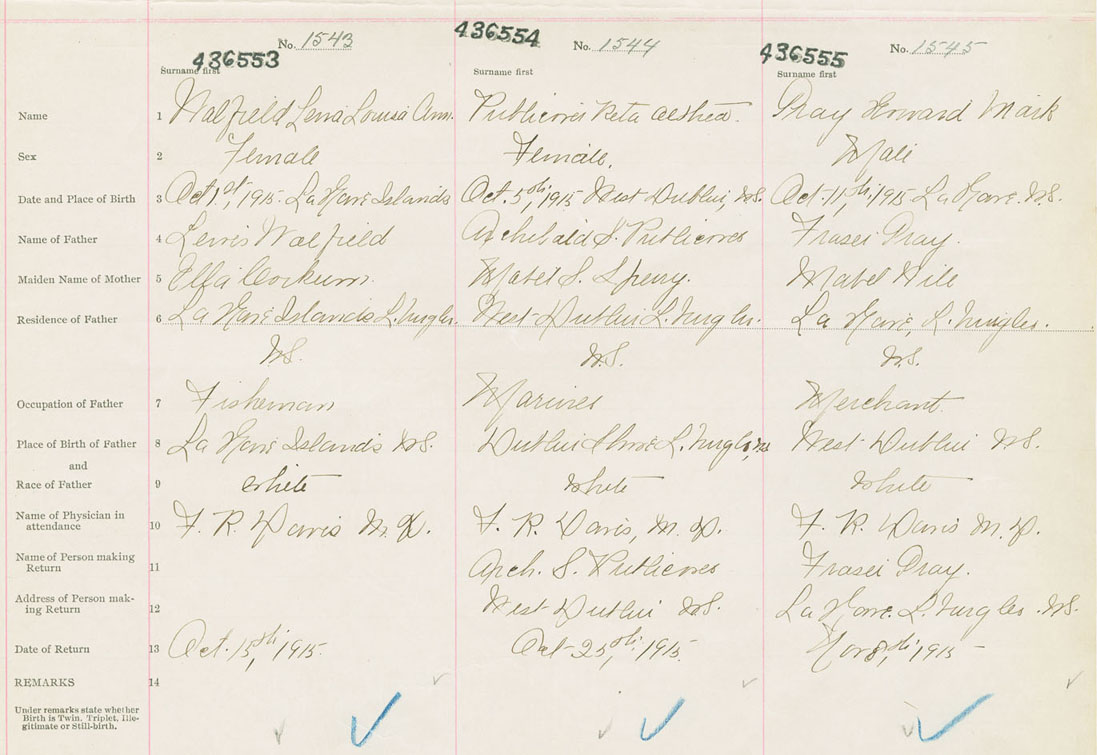 436553 No. 1543 436554 No. 1544 436555 No. 1545
Surname first Surname first Surname first
Name 1 Walfield Lena Louisa Ann. Publicover Reta Alethea. Gray Howard Mark
Sex 2 Female Female. Male
Date and Place of Birth 3 Oct 1st, 1915 - LaHave Islands Oct. 5th, 1915 West Dublin, N.S. Oct. 11th, 1915 LaHave. N.S.
Name of Father 4 Lewis Walfield Archibald S. Publicover Fraser Gray.
Maiden Name of Mother 5 Effa Corkum. Mabel S. Sperry. Mabel
Residence of Father 6 La Have Islands L.Ungbr. West-Dublin L.Ungbr. La Have, L.Ungbr.
N.S. N.S. N.S.
Occupation of Father 7 Fisheman Mariner Merchant
Place of Birth of Father 8 La Have Islands N.S. Dublin Shore L. N.S. West Dublin N.S.
and
Race of Father 9 White White White
Name of Physician in
attendance 10 F. R. Davis M.D. F. R. Davis, M.D. F. R. Davis M.D.
Name of Person making
Return 11 Arch. S. Publicover Fraser Gray.
Address of Person mak-
ing Return 12 West Dublin N.S. La Have. L. N.S.
Date of Return 13 Oct. 15th, 1915. Oct 25th, 1915. Nov 8th, 1915 -
REMARKS 14
Under remarks state whether
Birth is Twin. Triplet, Ille-
gitimate or Still-birth.